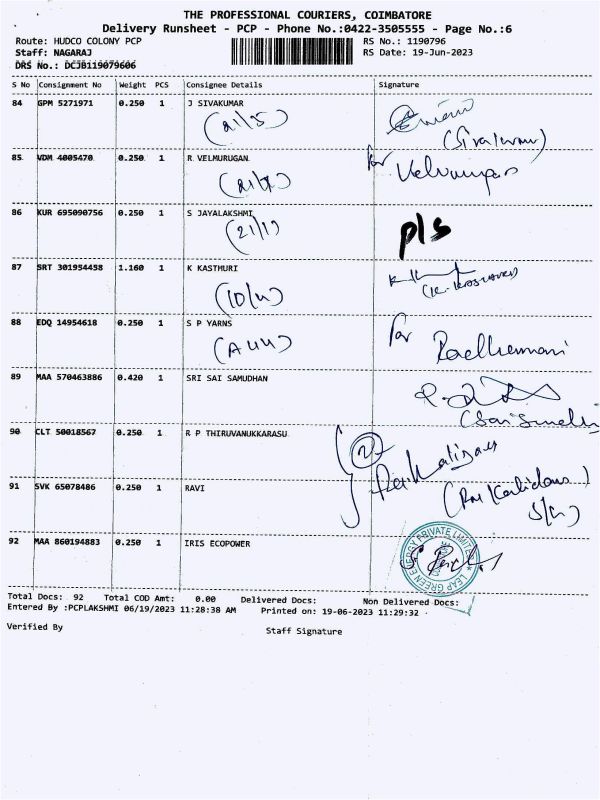 THE PROFESSIONAL COURIERS, COIMBATORE
Delivery Runsheet - PCP - Phone No.:0422-3505555 - Page No.:6
Route: HUDCO COLONY PCP RS No.: 1190796
Staff: NAGARAJ RS Date: 19-Jun-2023
DRS No.: DCJB119079606
S No Consignment No Weight PCS Consignee Details Signature
84 GPM 5271971 0.250 1 J SIVAKUMAR
(21/5)
(Sivakumar)
85 VDM 4005470 0.250 1 R VELMURUGAN for Velmurugan
86 KUR 695090756 0.250 1 S JAYALAKSHMI
(21/1) pls
87 SRT 301954458 1.160 1 K KASTHURI
(K. KASTHURI)
(10/4)
88 EDQ 14954618 0.250 1 S P YARNS for
(A44)
89 MAA 570463886 0.420 1 SRI SAI SAMUDHAN
90 CLT 50018567 0.250 1 R P THIRUVANUKKARASU
2
91 SVK 65078486 0.250 1 RAVI
92 MAA 860194883 0.250 1 IRIS ECOPOWER
LEAP GREEN ENERGY PRIVATE LIMITED
Total Docs: 92 Total COD Amt: 0.00 Delivered Docs: Non Delivered Docs:
Entered By :PCPLAKSHMI 06/19/2023 11:28:38 AM Printed on: 19-06-2023 11:29:32
Verified By Staff Signature